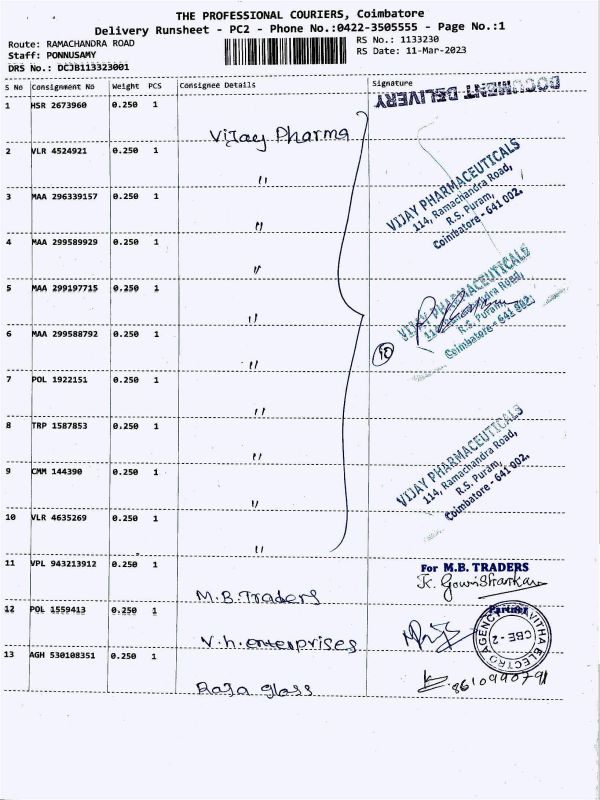 THE PROFESSIONAL COURIERS, Coimbatore
Delivery Runsheet - PC2 - Phone No.:0422-3505555 - Page No.:1
Route: RAMACHANDRA ROAD
Staff: PONNUSAMY
DRS No.: DCJB113323001
RS No.: 1133230
RS Date: 11-Mar-2023
S No Consignment No Weight PCS Consignee Details Signature
DOCUMENT DELIVERY
1 HSR 2673960 0.250 1 Vijay Pharma
2 VLR 4524921 0.250 1 "
3 MAA 296339157 0.250 1 "
4 MAA 299589929 0.250 1 "
5 MAA 299197715 0.250 1 "
6 MAA 299588792 0.250 1 "
7 POL 1922151 0.250 1 "
8 TRP 1587853 0.250 1 "
9 CMM 144390 0.250 1 "
10 VLR 4635269 0.250 1 "
VIJAY PHARMACEUTICALS
114, Ramachandra Road,
R.S. Puram,
Coimbatore - 641 002.
VIJAY PHARMACEUTICALS
114, Ramachandra Road,
R.S. Puram,
Coimbatore - 641 002.
10
VIJAY PHARMACEUTICALS
114, Ramachandra Road,
R.S. Puram,
Coimbatore - 641 002.
11 VPL 943213912 0.250 1 M.B.Traders
For M.B. TRADERS
K. Gowrishankar
Partner
12 POL 1559413 0.250 1 V.h.enterprises
CBE - 2
13 AGH 530108351 0.250 1 Raja glass
8610990791